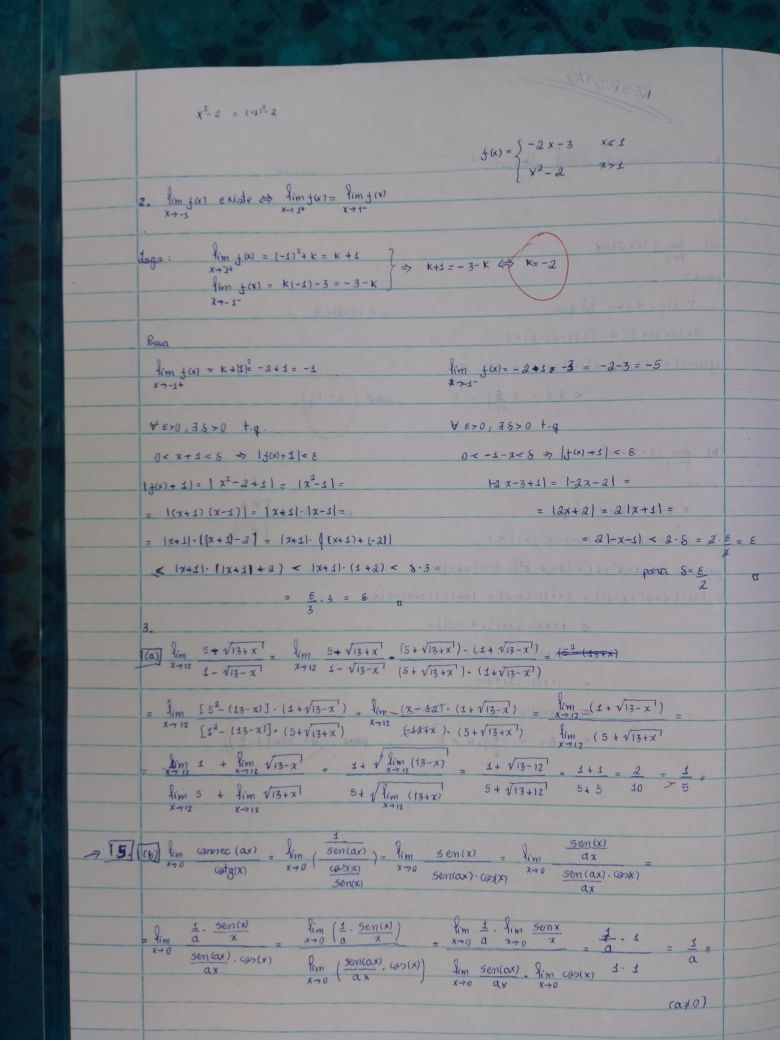 x² - 2 = (-1)² - 2
f(x) = { -2x - 3   x ≤ 1
x² - 2   x > 1
2. lim x→-1 f(x) existe ⇔ lim x→-1⁺ f(x) = lim x→-1⁻ f(x)
Logo: lim x→-1⁺ f(x) = (-1)² + k = k + 1
lim x→-1⁻ f(x) = k(-1) - 3 = -3 - k } ⇒ k + 1 = -3 - k ⇔ k = -2
Prova
lim x→-1⁺ f(x) = k + (-1)² = -2 + 1 = -1   lim x→-1⁻ f(x) = = -2 - 3 = -5
∀ ε > 0, ∃ δ > 0 t.q.   ∀ ε > 0, ∃ δ > 0 t.q.
0 < x + 1 < δ ⇒ |f(x) + 1| < ε   0 < -1 - x < δ ⇒ |f(x) + 1| < ε
|f(x) + 1| = |x² - 2 + 1| = |x² - 1| =   |-2x - 3 + 1| = |-2x - 2| =
= |(x+1)(x-1)| = |x+1| · |x-1| =   = |2x + 2| = 2|x + 1| =
= |x+1| · |(x+1) - 2| = |x+1| · |(x+1) + (-2)|   = 2|-x-1| < 2 · δ = 2 · ε/2 = ε
≤ |x+1| · (|x+1| + 2) < |x+1| · (1 + 2) < δ · 3 =   para δ = ε/2 □
= ε/3 · 3 = ε □
3.
(a) lim x→12 (5 - √(13+x))/(1 - √(13-x)) = lim x→12 (5 - √(13+x))/(1 - √(13-x)) · ((5 + √(13+x)) · (1 + √(13-x)))/((5 + √(13+x)) · (1 + √(13-x))) = (5² - (13+x))
= lim x→12 ([5² - (13-x)] · (1 + √(13-x)))/([1² - (13-x)] · (5 + √(13+x))) = lim x→12 - ((x - 12) · (1 + √(13-x)))/((-12+x) · (5 + √(13+x))) = (lim x→12 - (1 + √(13-x)))/(lim x→12 (5 + √(13+x))) =
= (lim x→12 1 + lim x→12 √(13-x))/(lim x→12 5 + lim x→12 √(13+x)) = (1 + √(lim x→12 (13-x)))/(5 + √(lim x→12 (13+x))) = (1 + √(13-12))/(5 + √(13+12)) = (1 + 1)/(5 + 5) = 2/10 = 1/5 //
→ 5. (b) lim x→0 cossec(ax)/cotg(x) = lim x→0 ((1/sen(ax))/(cos(x)/sen(x))) = lim x→0 sen(x)/(sen(ax) · cos(x)) = lim x→0 (sen(x)/ax)/((sen(ax) · cos(x))/ax) =
= lim x→0 (1/a · sen(x)/x)/(sen(ax)/ax · cos(x)) = (lim x→0 (1/a · sen(x)/x))/(lim x→0 (sen(ax)/ax · cos(x))) = (lim x→0 1/a · lim x→0 senx/x)/(lim x→0 sen(ax)/ax · lim x→0 cos(x)) = (1/a · 1)/(1 · 1) = 1/a //
(a ≠ 0)